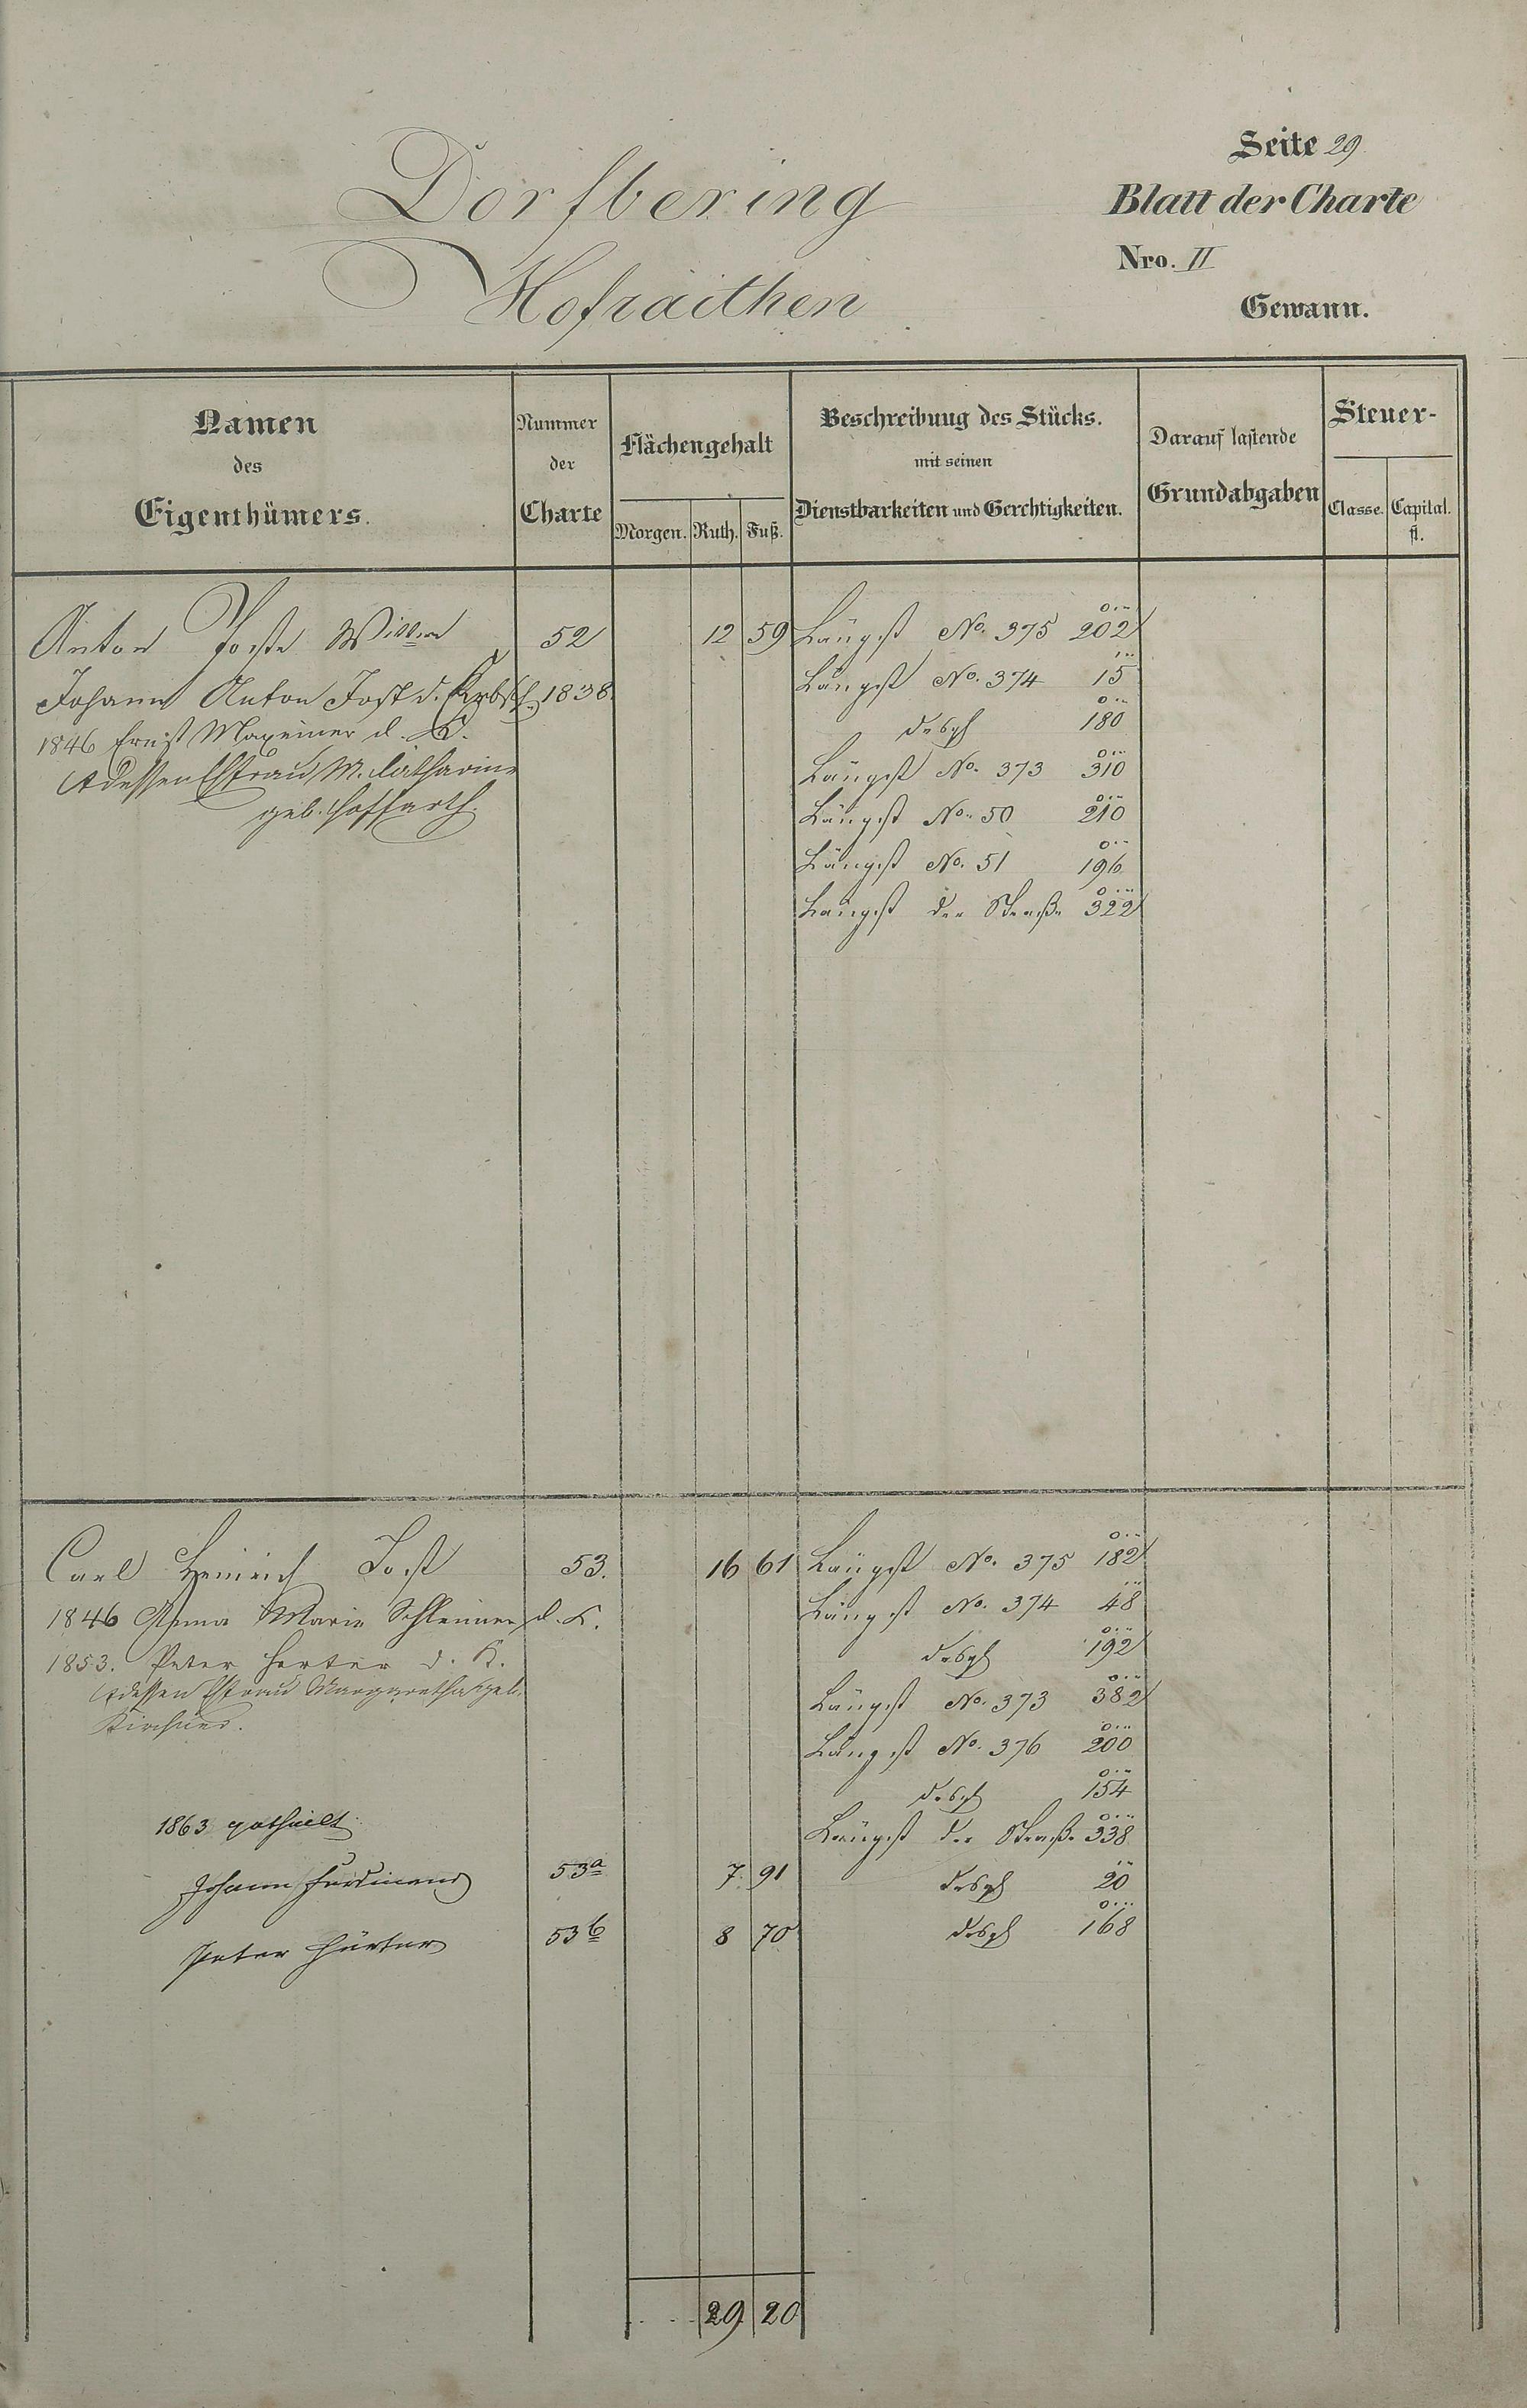 Seite 29
Dorfbering
Blatt der Charte
Nro. II
Hofraithen
Gewann.
Namen des Eigenthümers.
Nummer der Charte
Flächengehalt
Morgen. Ruth. Fuß.
Beschreibung des Stücks. mit seinen Dienstbarkeiten und Gerechtigkeiten.
Darauf lastende Grundabgaben
Steuer-
Classe. Capital. fl.
Anton Joste 52 12 59 Längst No. 375 202
Johann Anton Jost d. Erbsch. 1838. Längst No. 374 15
1846 Ernst Maxeiner d. K. desgl 180
& dessen Ehfrau M. Catharine Längst No. 373 310
geb. Hoffarth. Längst No. 50 210
Längst No. 51 196
Längst der Straße 322
Carl Heinrich Jost 53. 16 61 Längst No. 375 182
1846 Anna Marie d. K. Längst No. 374 48
1853. Peter Herter d. K. desgl 192
& dessen Ehfrau Margaretha geb. Längst No. 373 382
Kirchner. Längst No. 376 200
desgl 154
1863 getheilt Längst der Straße 338
Johann Ferdinand 53a 7 91 desgl 20
Peter Hürter 53b 8 70 desgl 168
29 20